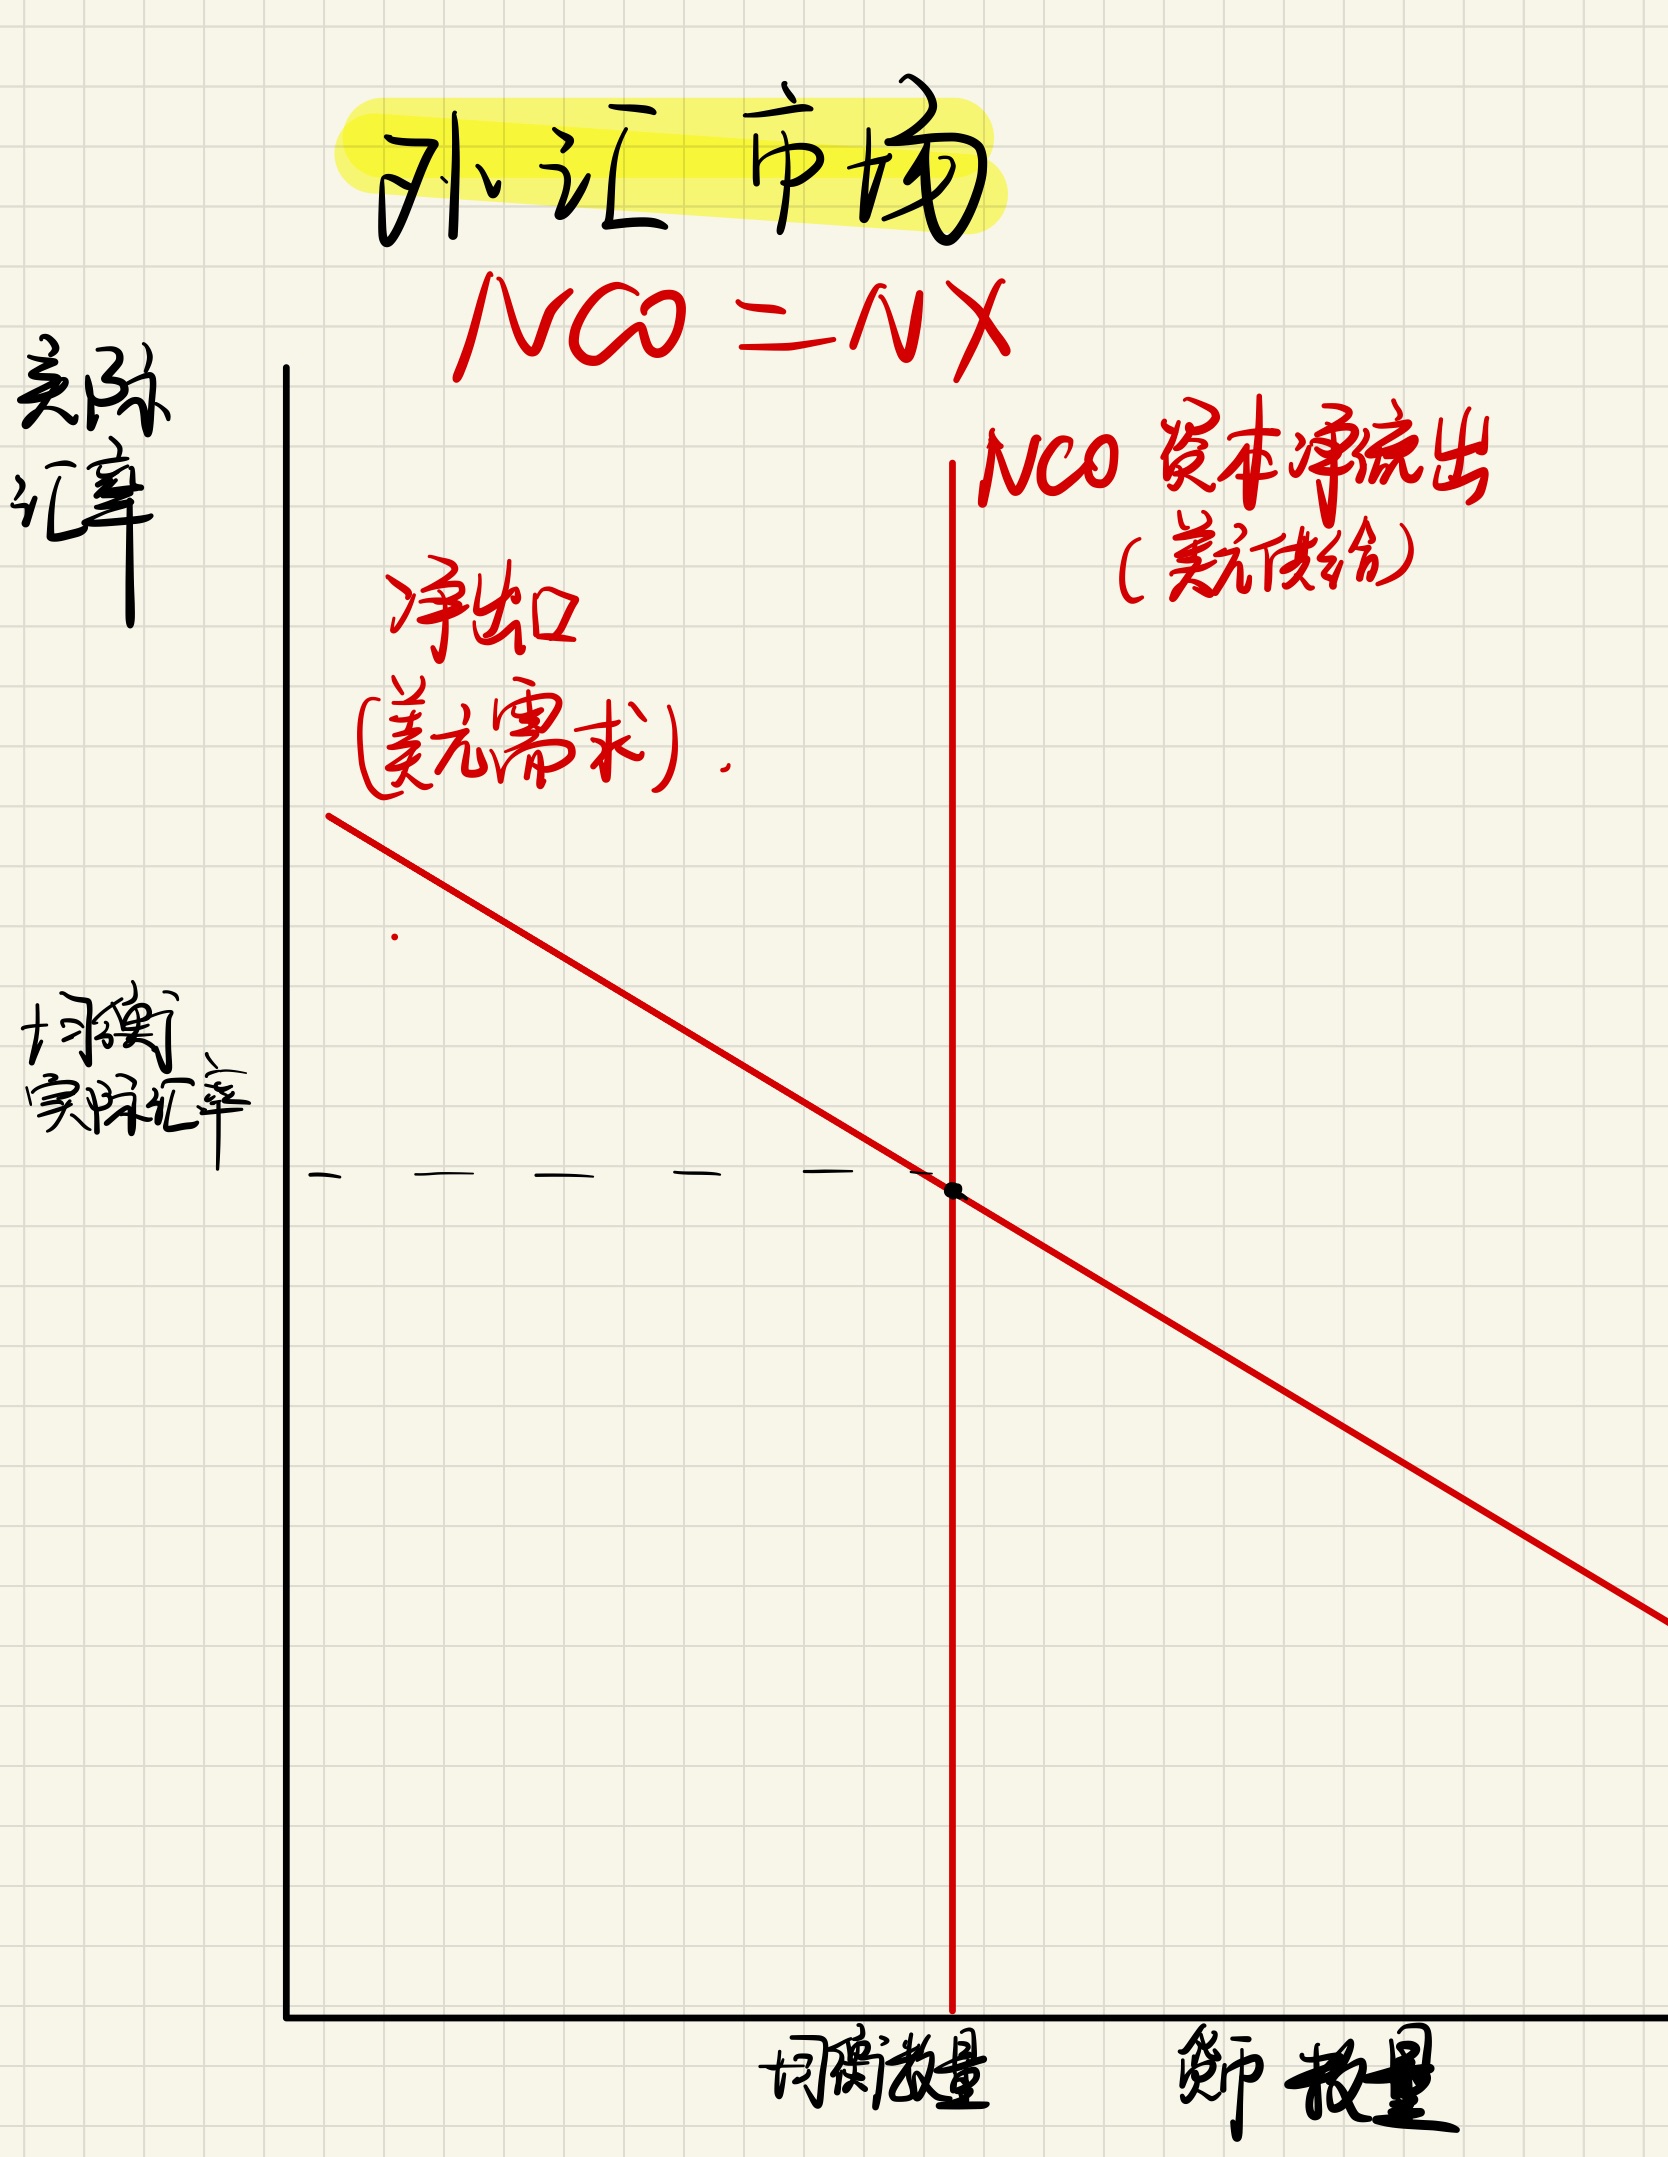 外汇市场
NCO = NX
实际
汇率
NCO 资本净流出
(美元供给)
净出口
(美元需求).
均衡
实际汇率
均衡数量
货币数量